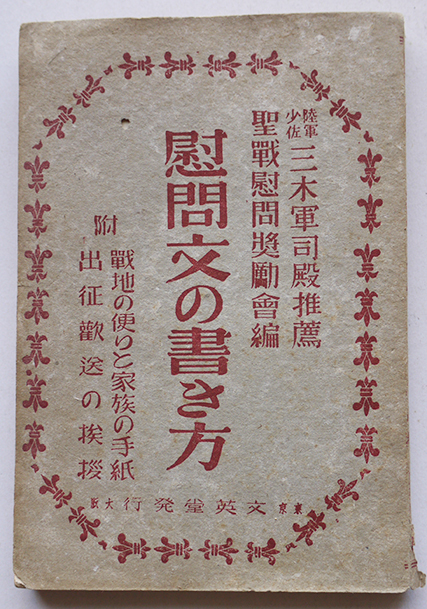 陸軍少佐三木軍司殿推薦
聖戰慰問奬勵會編
慰問文の書き方
附 戰地の便りと家族の手紙
出征歡送の挨拶
東京 文英堂発行 大阪